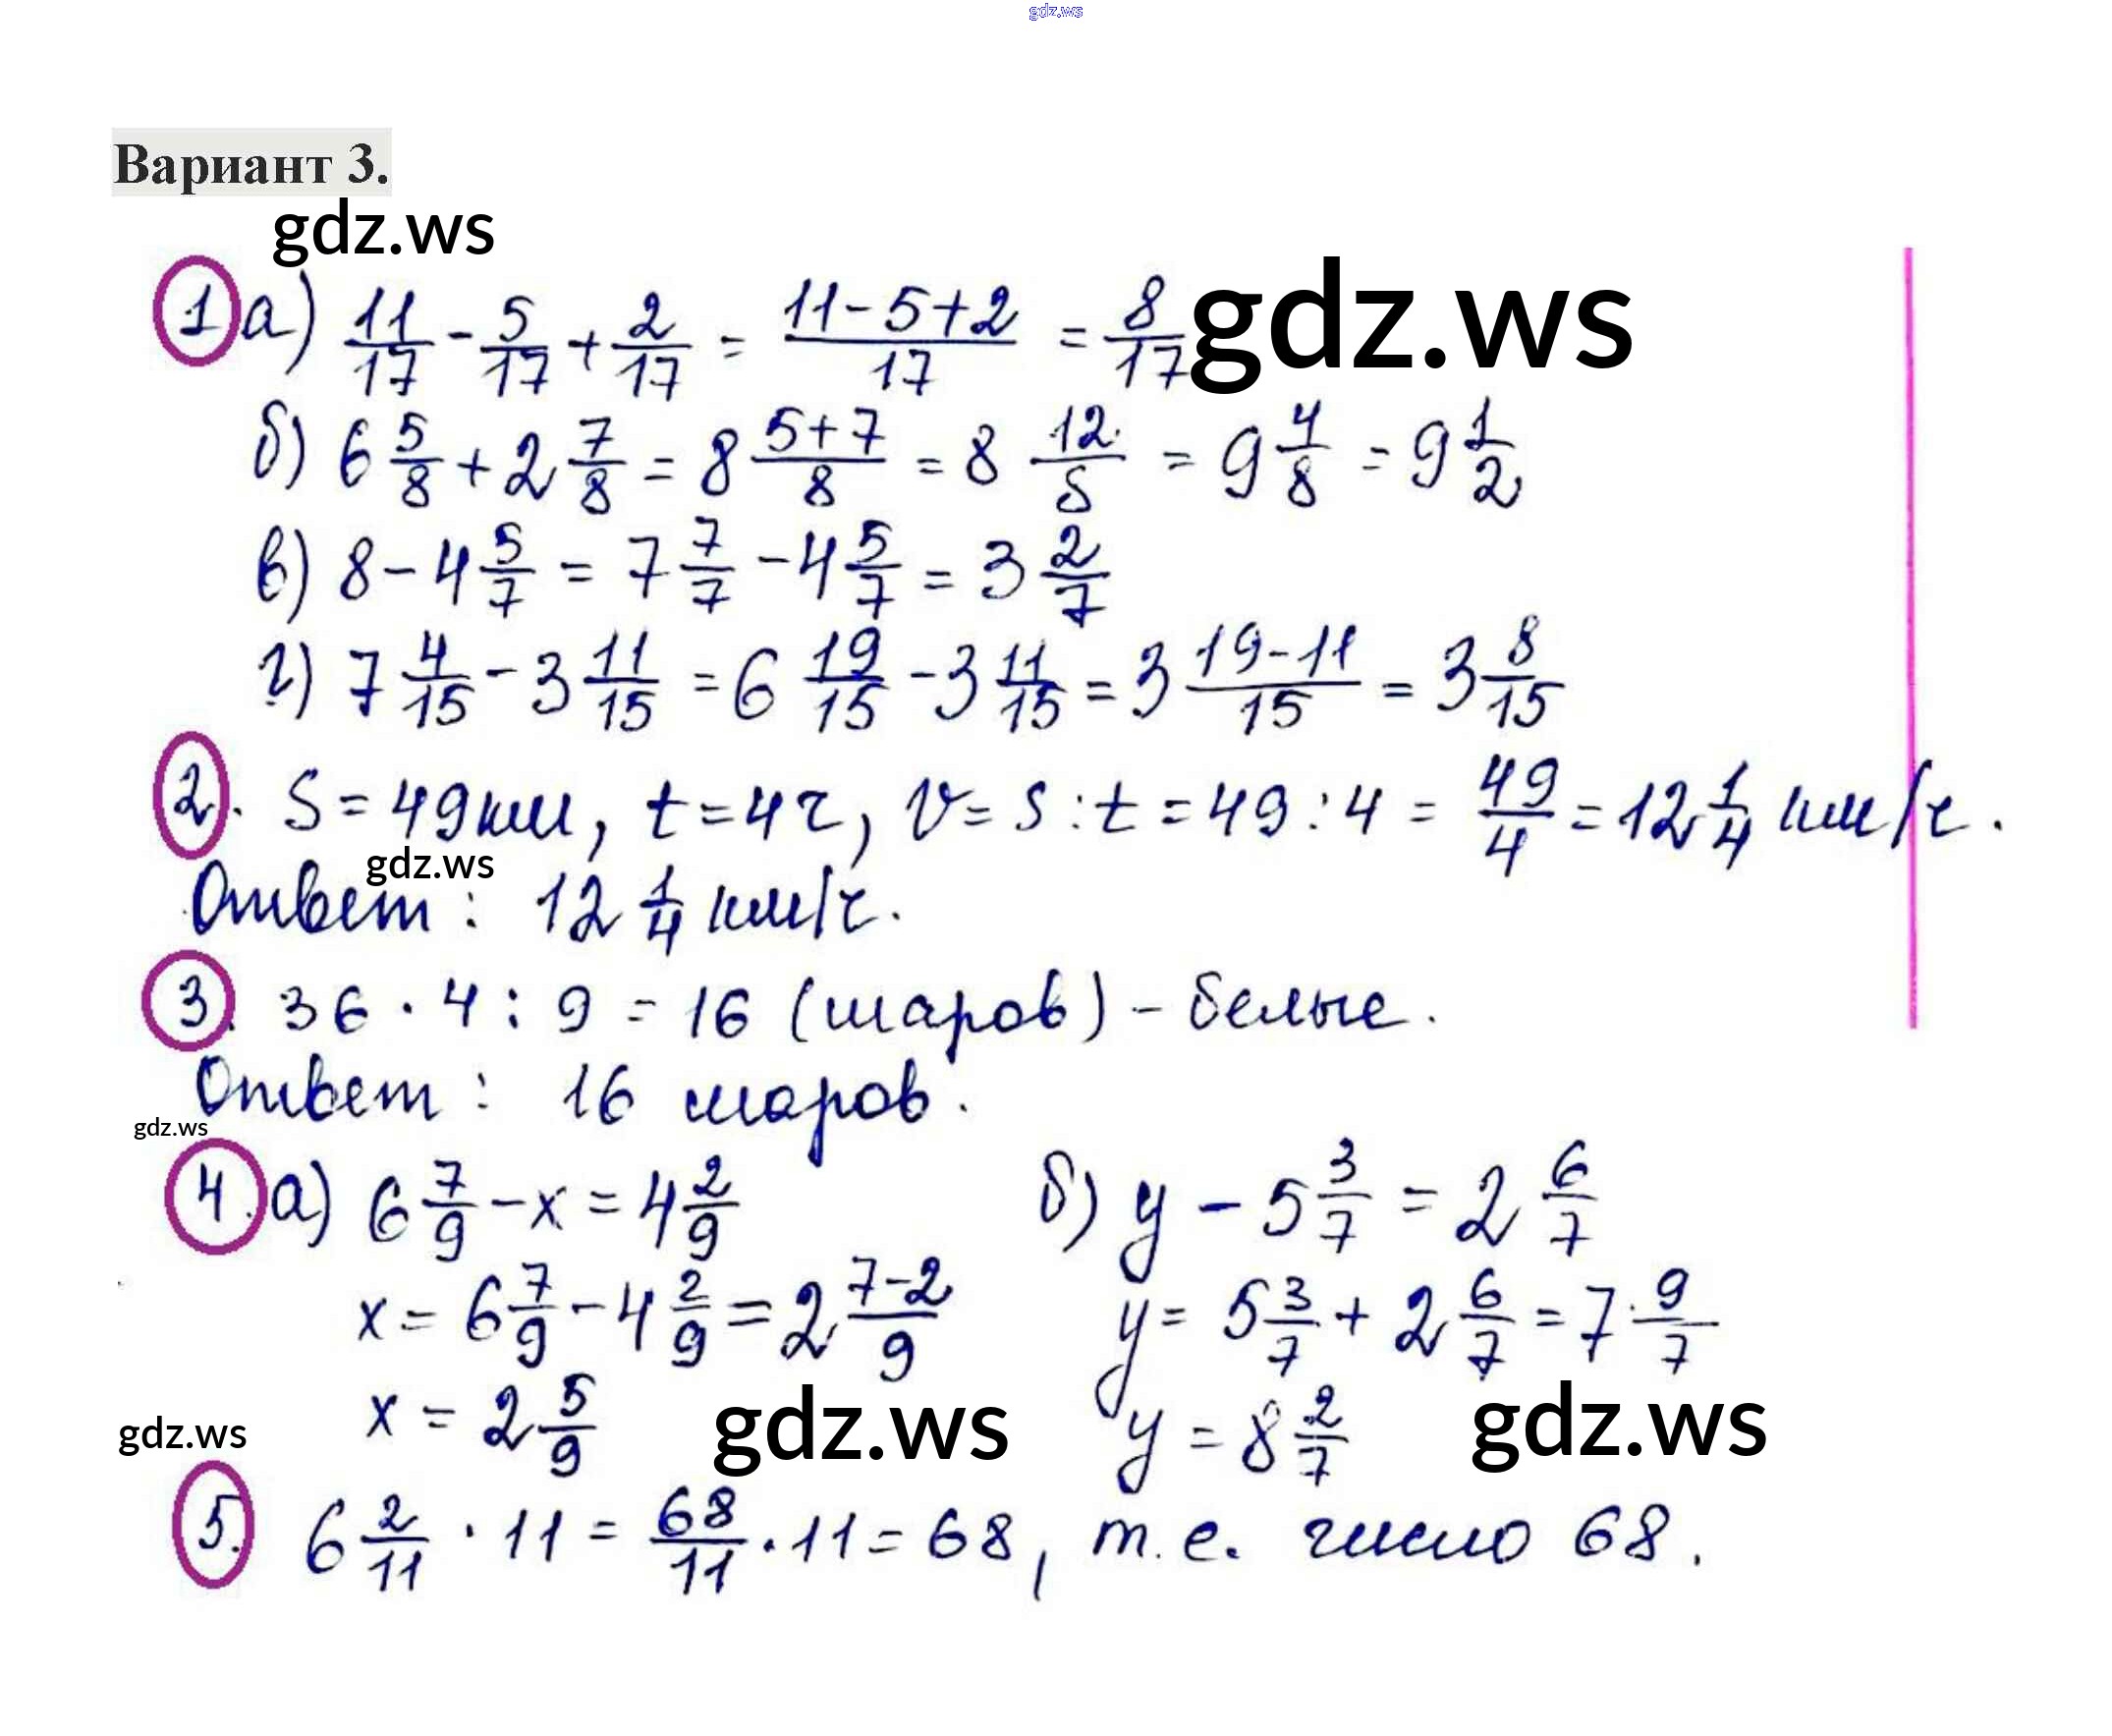 gdz.ws
Вариант 3.
gdz.ws
1 а) 11/17 - 5/17 + 2/17 = (11-5+2)/17 = 8/17 gdz.ws
б) 6 5/8 + 2 7/8 = 8 (5+7)/8 = 8 12/8 = 9 4/8 = 9 1/2
в) 8 - 4 5/7 = 7 7/7 - 4 5/7 = 3 2/7
г) 7 4/15 - 3 11/15 = 6 19/15 - 3 11/15 = 3 (19-11)/15 = 3 8/15
2. S = 49 км, t = 4 ч, V = s : t = 49 : 4 = 49/4 = 12 1/4 км/ч.
gdz.ws
Ответ: 12 1/4 км/ч.
3. 36 · 4 : 9 = 16 (шаров) - белые.
Ответ: 16 шаров.
gdz.ws
4. а) 6 7/9 - x = 4 2/9 б) y - 5 3/7 = 2 6/7
x = 6 7/9 - 4 2/9 = 2 (7-2)/9 y = 5 3/7 + 2 6/7 = 7 9/7
x = 2 5/9 gdz.ws y = 8 2/7 gdz.ws
gdz.ws
5. 6 2/11 · 11 = 68/11 · 11 = 68, т.е. число 68.